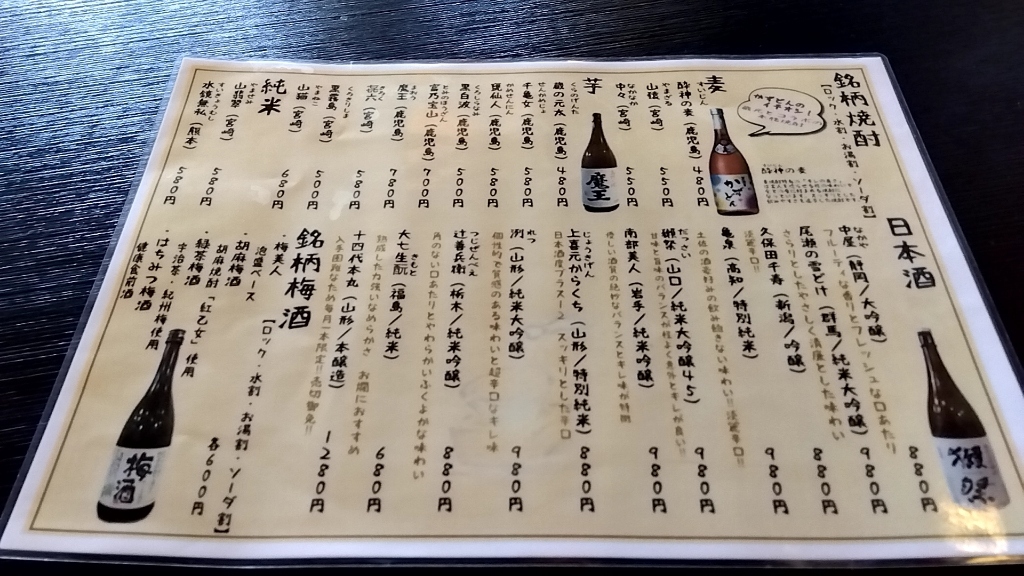 銘柄焼酎
【ロック・水割・お湯割・ソーダ割】
酔神の麦
麦
酔神の麦(鹿児島) 480円
山猿(宮崎) 550円
中々(宮崎) 550円
芋
魔王
蔵の元太(鹿児島) 480円
千亀女(鹿児島) 580円
甕仙人(鹿児島) 500円
黒白波(鹿児島) 500円
富乃宝山(鹿児島) 700円
魔王(鹿児島) 780円
(宮崎) 580円
黒霧島(宮崎) 500円
山猫(宮崎) 680円
純米
山翡翠(宮崎) 580円
水鏡無私(熊本) 580円
日本酒
中屋(静岡/大吟醸) 880円
フルーティな香りとフレッシュな口あたり
尾瀬の雪どけ(群馬/純米大吟醸) 980円
さらりとしたやさしく清廉とした味わい
久保田千寿(新潟/吟醸) 880円
淡麗辛口!!
亀泉(高知/特別純米) 980円
土佐の酒豪好みの飲み飽きない味わい!!淡麗辛口!!
獺祭(山口/純米大吟醸45) 980円
甘味と旨味のバランスが程よく香りとキレが良い!!
南部美人(岩手/純米吟醸) 980円
優しい酒質の絶妙なバランスとキレ味が特徴
上喜元からくち(山形/特別純米) 880円
日本酒度プラス12 スッキリとした辛口
洌(山形/純米大吟醸) 980円
個性的で質感のある味わいと超辛口なキレ味
辻善兵衛(栃木/純米吟醸) 880円
角のない口あたりとやわらかいふくよかな味わい
大七生酛(福島/純米) 680円
熟成した力強いなめらかさ お燗におすすめ
十四代本丸(山形/本醸造) 1280円
入手困難のため毎月一本限定!!売切御免!!
獺祭
銘柄梅酒
【ロック・水割・お湯割・ソーダ割】
・梅美人
泡盛ベース
・胡麻梅酒
胡麻焼酎「紅乙女」使用
・緑茶梅酒
宇治茶・紀州梅使用
・はちみつ梅酒
健康食前酒
各600円
梅酒